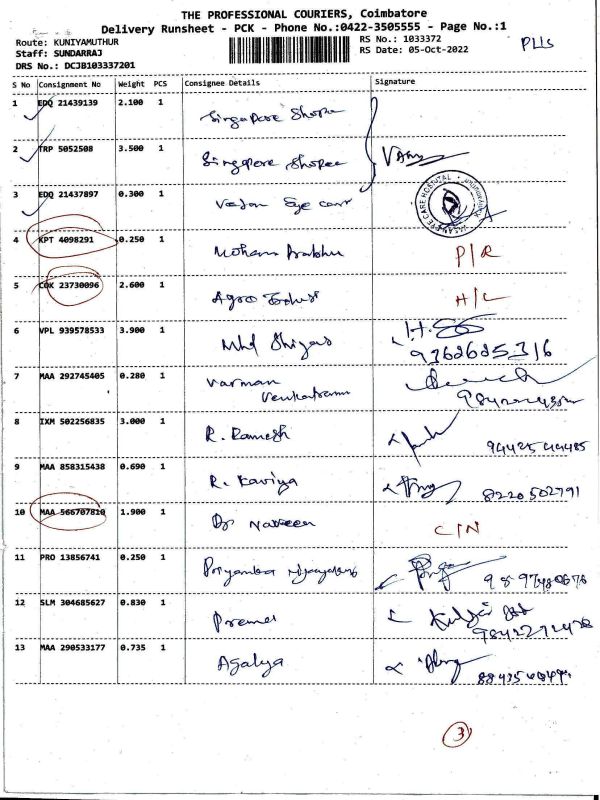 THE PROFESSIONAL COURIERS, Coimbatore
Delivery Runsheet - PCK - Phone No.:0422-3505555 - Page No.:1
Route: KUNIYAMUTHUR
RS No.: 1033372
Staff: SUNDARRAJ
RS Date: 05-Oct-2022
DRS No.: DCJB103337201
S No Consignment No Weight PCS Consignee Details Signature
1 EDQ 21439139 2.100 1 Singapore Shope
2 TRP 5052508 3.500 1 Singapore Shopee
3 EDQ 21437897 0.300 1 Vasan Eye care
4 KPT 4098291 0.250 1 Mohan Prabhu P/R
5 COK 23730096 2.600 1 Agro H/C
6 VPL 939578533 3.900 1 Mhd Shiyas 9362685316
7 MAA 292745405 0.280 1 Varman
Venkatraman
8 IXM 502256835 3.000 1 R. Ramesh 9442544485
9 MAA 858315438 0.690 1 R. Kaviya 8220502791
10 MAA 566707810 1.900 1 Dr Naveen C/N
11 PRO 13856741 0.250 1 Priyamka
12 SLM 304685627 0.830 1 Prema
13 MAA 290533177 0.735 1 Agalya
3